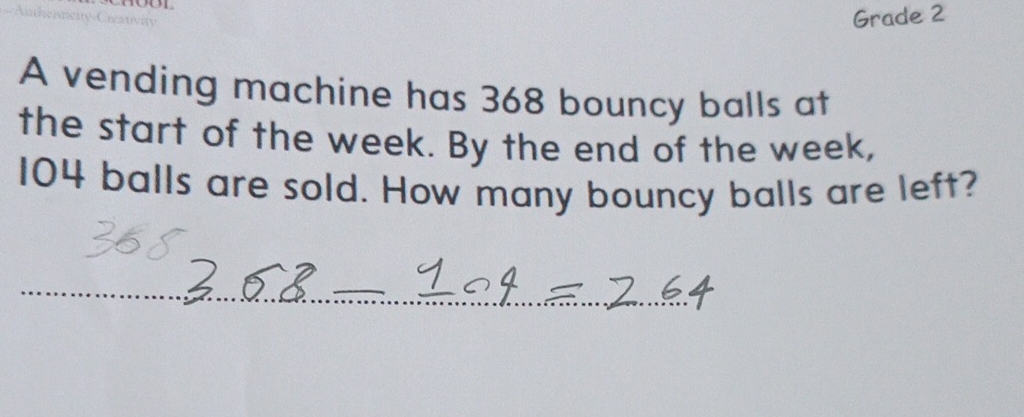 SCHOOL
Authenticity-Creativity
Grade 2
A vending machine has 368 bouncy balls at
the start of the week. By the end of the week,
104 balls are sold. How many bouncy balls are left?
368
368 - 104 = 264